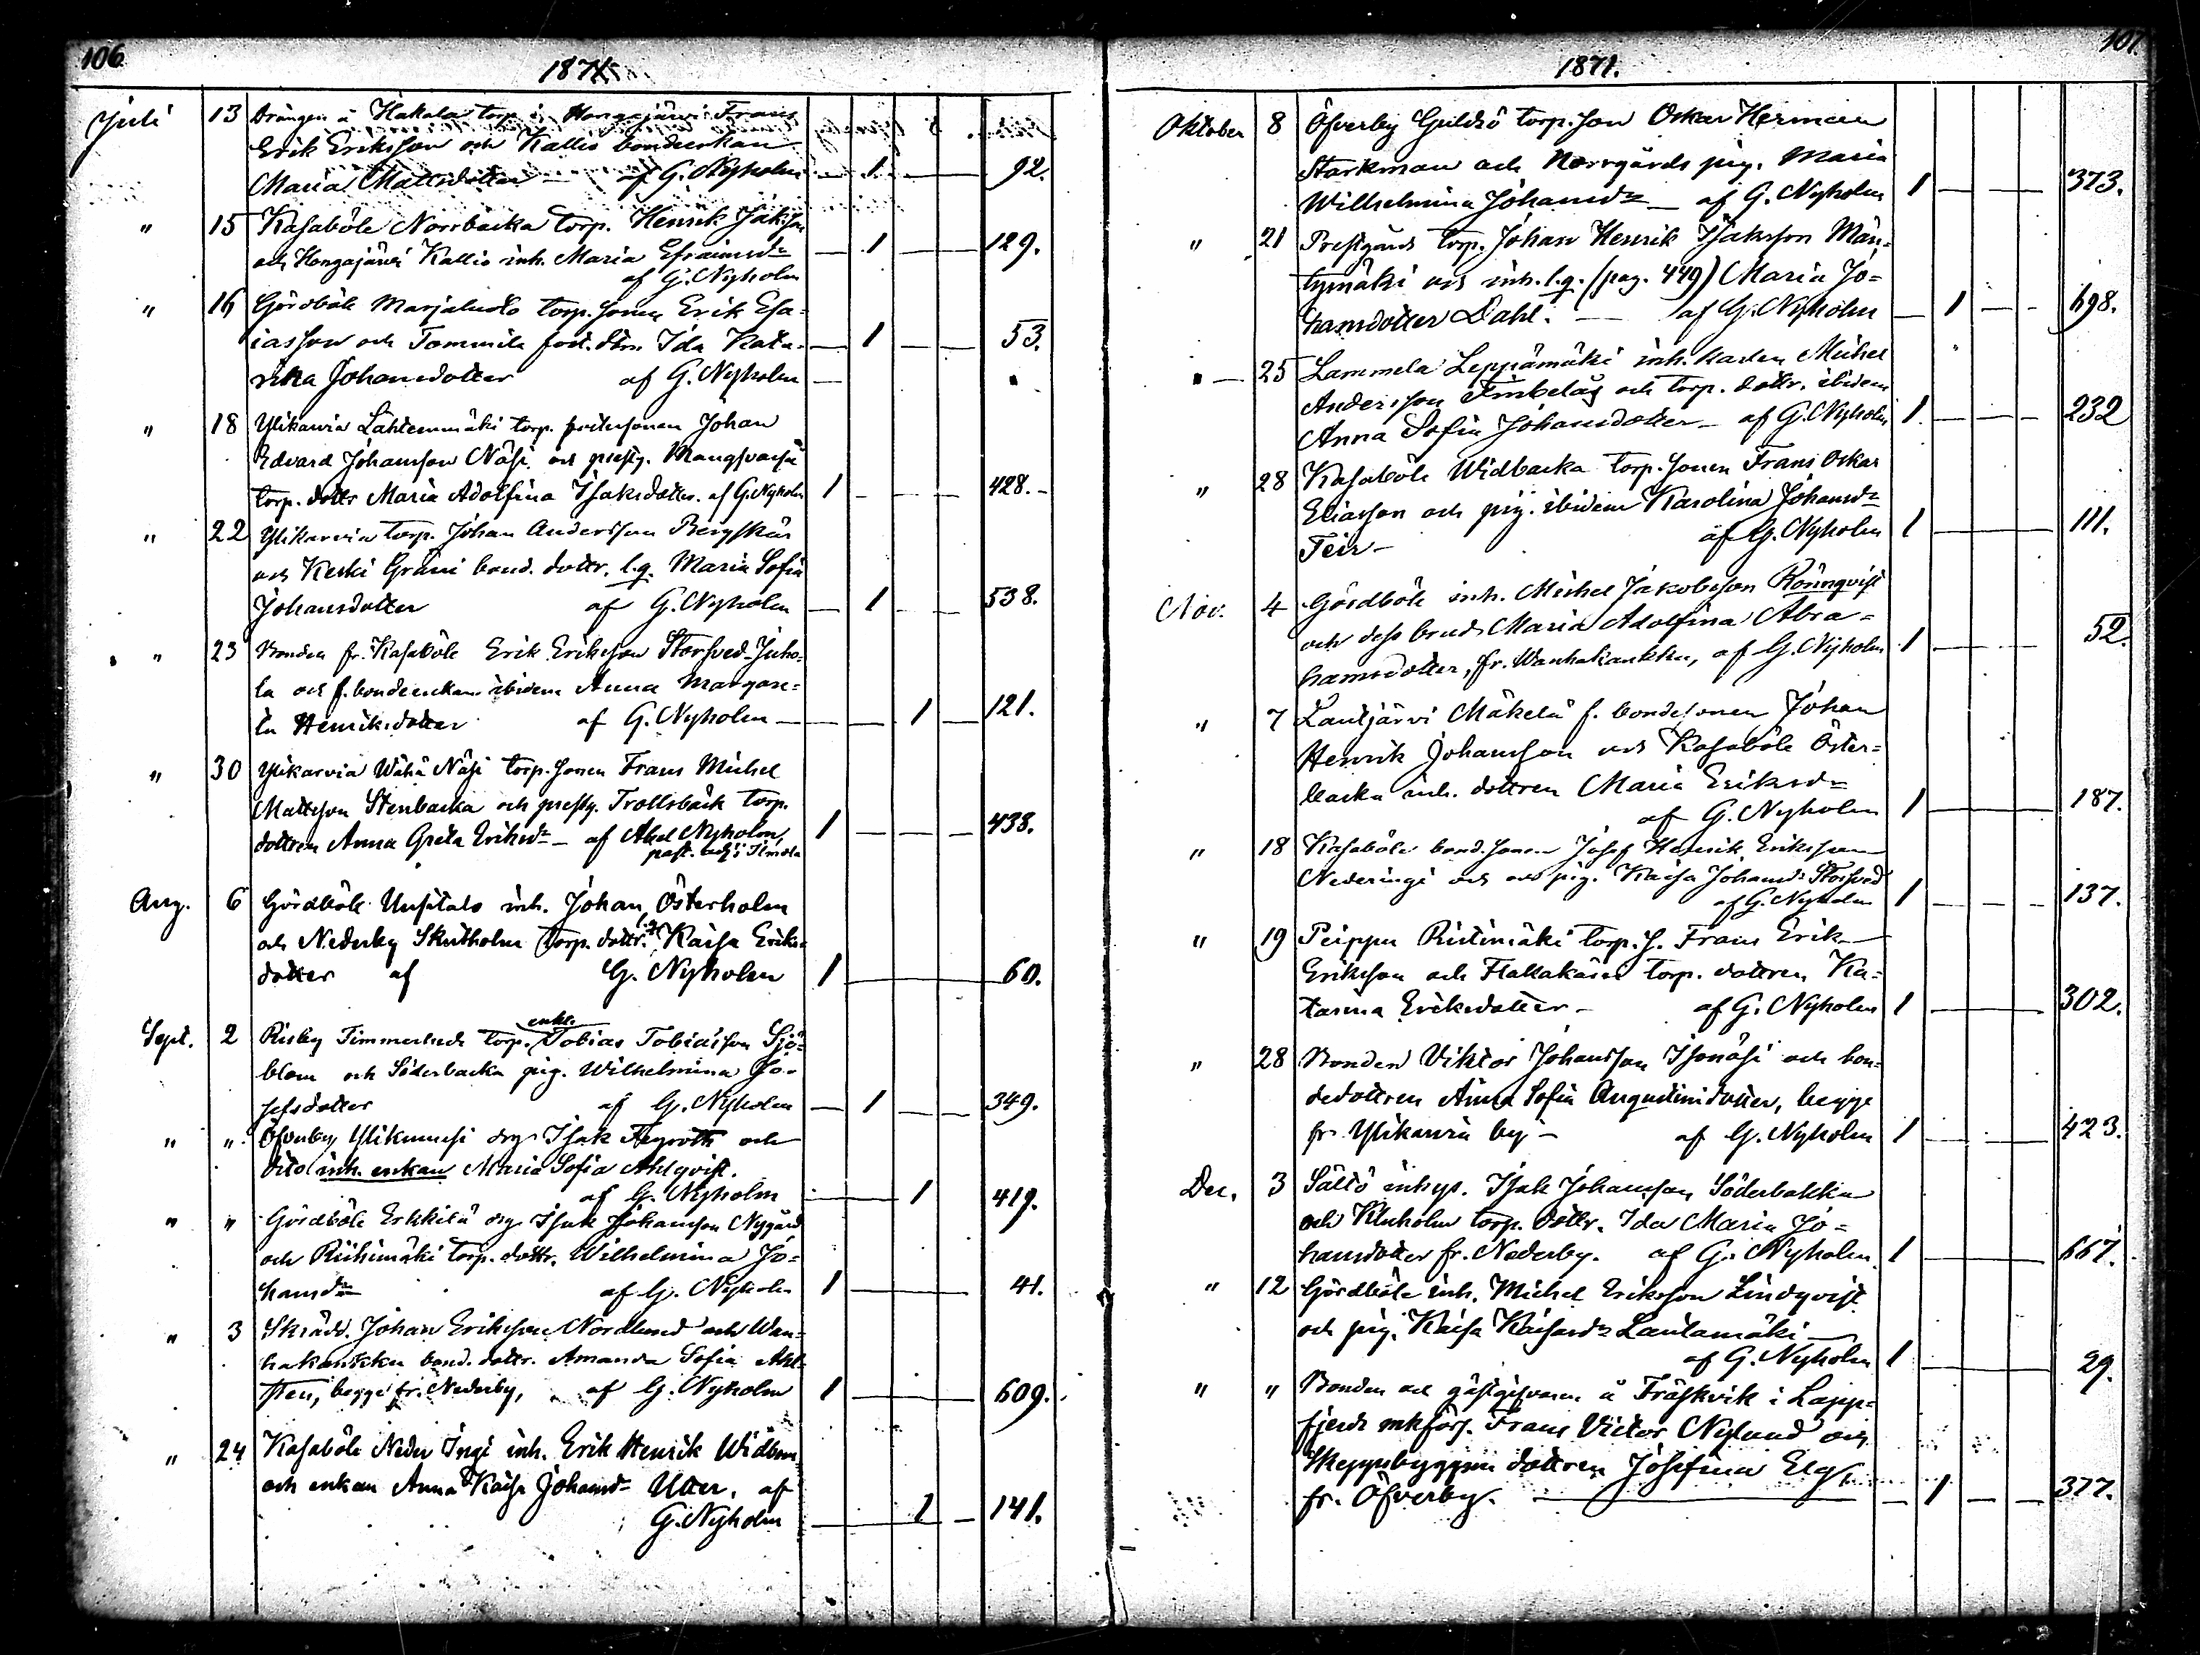 106
1871.
Juli 13 Drängen å Hakala torp i Hongajärvi Frans
Erik Eriksson och Kallio bondeenkan
Maria Mattsdotter — af G. Nyholm — 1 — 92.
" 15 Kasaböle Norrbacka torp. Henrik Jakss
och Hongajärvi Kallio inh. Maria Efraimsdr — 1 — 129.
af G. Nyholm
" 16 Gördböle Marjaluoto torp. sonen Erik Esa-
iasson och Tommila fost. dtrn Ida Kata- — 1 — 53.
rika Johansdotter af G. Nyholm —
" 18 Ylikarvia Lähtemmäki torp. fostersonen Johan
Edvard Johansson Näsi och prestg.
torp. dottr Maria Adolfina Isaksdotter. af G. Nyholm 1 — 428.
" 22 Ylikarvia torp. Johan Andersson Bergskär
och Keski Gräni bond. dottr. l.g. Maria Sofia
Johansdotter af G. Nyholm — 1 — 538.
" 23 Bonden fr. Kasaböle Erik Eriksson Storsved-Juho-
la och f. bondeenkan ibidem Anna Margare-
ta Henriksdotter af G. Nyholm — 1 — 121.
" 30 Ylikarvia Wähä Näsi torp. sonen Frans Michel
Mattsson Stenbacka och prestg. Trollsbäck torp.
dottren Anna Greta Eriksdr — af Axel Nyholm, 1 — 438.
past. adj. i
Aug. 6 Gördböle Uusitalo inh. Johan Österholm
och Nederby Skutholm torp. dottr. l.g. Kaisa Eriks-
dotter af G. Nyholm 1 — 60.
Sept. 2 Risby Timmerhed torp. enkl. Tobias Tobiasson Sjö-
blom och Söderbacka pig. Wilhelmina Jo-
sefsdotter af G. Nyholm — 1 — 349.
" " Öfverby Ylikunusi drg Isak Fagroth och
dito inh. enkan Maria Sofia Ahlqvist.
af G. Nyholm — 1 — 419.
" " Gördböle Erkkilä drg Isak Johansson Nygård
och Riihimäki torp. dottr. Wilhelmina Jo-
hansdr af G. Nyholm 1 — 41.
" 3 Skrädd. Johan Eriksson Nordlund och Wan-
hakankku bond. dottr. Amanda Sofia Ahl-
sten, begge fr. Nederby, af G. Nyholm 1 — 609.
" 24 Kasaböle Neder Ingi inh. Erik Henrik Widbom
och enkan Anna Kaisa Johansdr Utter. af
G. Nyholm — 1 — 141.
107
1871.
Oktober 8 Öfverby Guldsö torp. son Oskar Herman
Starkman och Norrgårds pig. Maria
Wilhelmina Johansdr — af G. Nyholm 1 — 373.
" 21 Prestgårds torp. Johan Henrik Isaksson Män-
tymäki och inh. l.g. (pag. 449) Maria Jo-
hansdotter Dahl. — af G. Nyholm — 1 — 698.
" 25 Lammela Leppämäki inh. karlen Michel
Andersson Finbeläg och torp. dottr. ibidem
Anna Sofia Johansdotter — af G. Nyholm 1. — 232
" 28 Kasaböle Widbacka torp. sonen Frans Oskar
Eliasson och pig. ibidem Karolina Johansdr
Feir — af G. Nyholm 1 — 111.
Nov. 4 Gördböle inh. Michel Jakobsson Rönnqvist
och dess brud Maria Adolfina Abra-
hamsdotter, fr. Wanhakankku, af G. Nyholm 1 — 52.
" 7 Lautjärvi Mäkelä f. bondesonen Johan
Henrik Johansson och Kasaböle Öster-
backa inh. dottren Maria Eriksdr
af G. Nyholm 1 — 187.
" 18 Kasaböle bond. sonen Josef Henrik Eriksson
Nederingi och pig. Kaisa Johansdr Storsved
af G. Nyholm 1 — 137.
" 19 Peippu Ristimäki torp. s. Frans Erik
Eriksson och torp. dottren Ka-
tarina Eriksdotter — af G. Nyholm 1 — 302.
" 28 Bonden Viktor Johansson Isonäsi och bon-
dedottren Anna Sofia Augustinidotter, begge
fr. Ylikarvia by — af G. Nyholm 1 — 423.
Dec. 3 Sältö inhys. Isak Johansson Söderbakka
och Kluholm torp. dottr. Ida Maria Jo-
hansdotter fr. Nederby. af G. Nyholm 1 — 667.
" 12 Gördböle inh. Michel Eriksson Lindqvist
och pig. Kaisa Kaisasdr Lautamäki —
af G. Nyholm 1 — 29.
" " Bonden och gästgifvaren å Träskvik i Lapp-
fjerds mkförs. Frans Victor Nylund och
Skeppsbyggm dottren Josefina Elgs
fr. Öfverby. — 1 — 377.